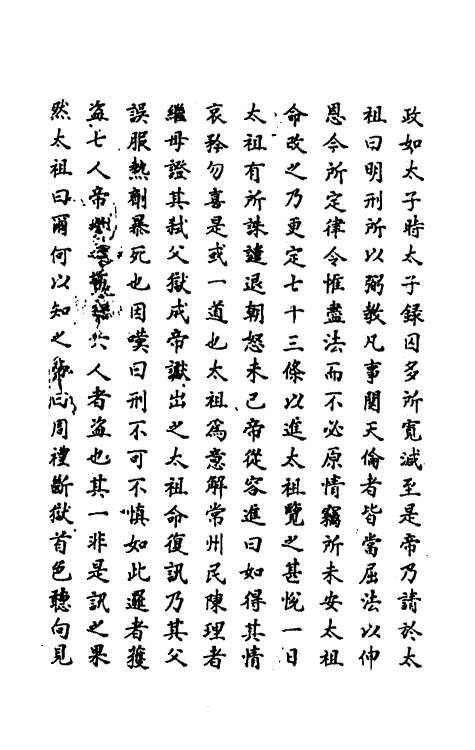 政如太子時太子録囚多所寛減至是帝乃請於太
祖曰明刑所以弼教凡事関天倫者皆當屈法以伸
恩今所定律令惟盡法而不必原情竊所未安太祖
命改之乃更定七十三條以進太祖覽之甚悅一日
太祖有所誅譴退朝怒未已帝從容進曰如得其情
哀矜勿喜是或一道也太祖爲意解常州民陳理者
繼母證其弑父獄成帝讞出之太祖命復訊乃其父
誤服熱劑暴死也因嘆曰刑不可不慎如此邏者獲
盗七人帝
六人者盗也其一非是訊之果
然太祖曰爾何以知之帝曰周禮斷獄首色聽向見